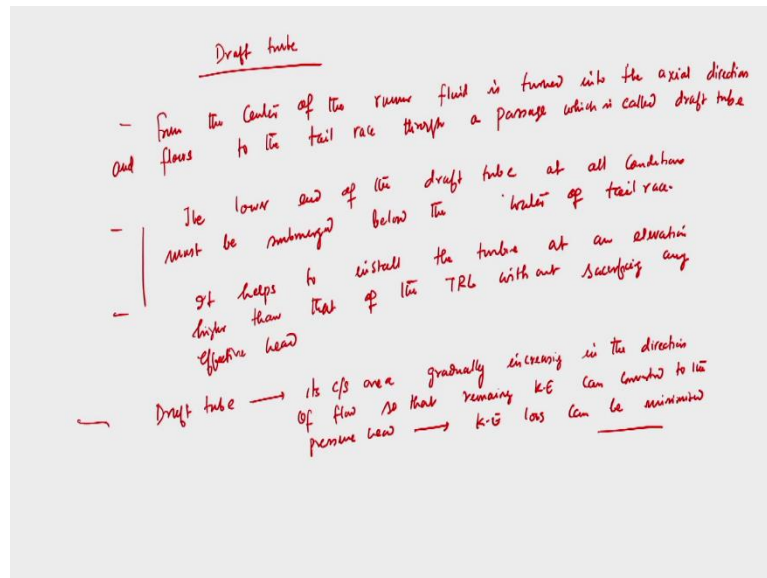 Draft tube
- From the center of the runner fluid is turned into the axial direction
and flows to the tail race through a passage which is called draft tube
- The lower end of the draft tube at all conditions
must be submerged below the water of tail race.
- It helps to install the turbine at an elevation
higher than that of the TRL without sacrificing any
effective head
- Draft tube → its c/s area gradually increasing in the direction
of flow so that remaining K.E can converted to the
pressure head → K.E loss can be minimized